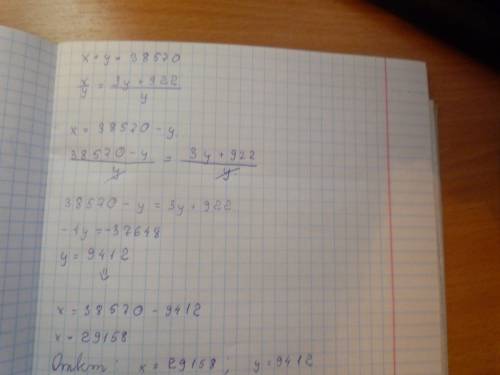 x + y = 38570
x/y = (3y + 922)/y
x = 38570 - y
(38570 - y)/y = (3y + 922)/y
38570 - y = 3y + 922
-4y = -37648
y = 9412
x = 38570 - 9412
x = 29158
Ответ: x = 29158; y = 9412